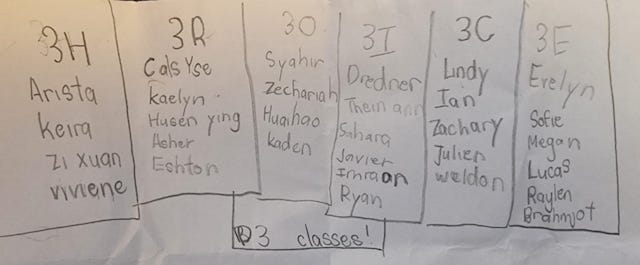 3H
Arista
Keira
Zi xuan
viviene
3R
Calsyse
Kaelyn
Husen ying
Asher
Eshton
3O
Syahir
Zechariah
Huaihao
Kaden
3I
Dredner
Thein ann
Sahara
Javier
Imraan
Ryan
3C
Lindy
Ian
Zachary
Julien
weldon
3E
Evelyn
Sofie
Megan
Lucas
Raylen
Brahmjot
P3 classes!